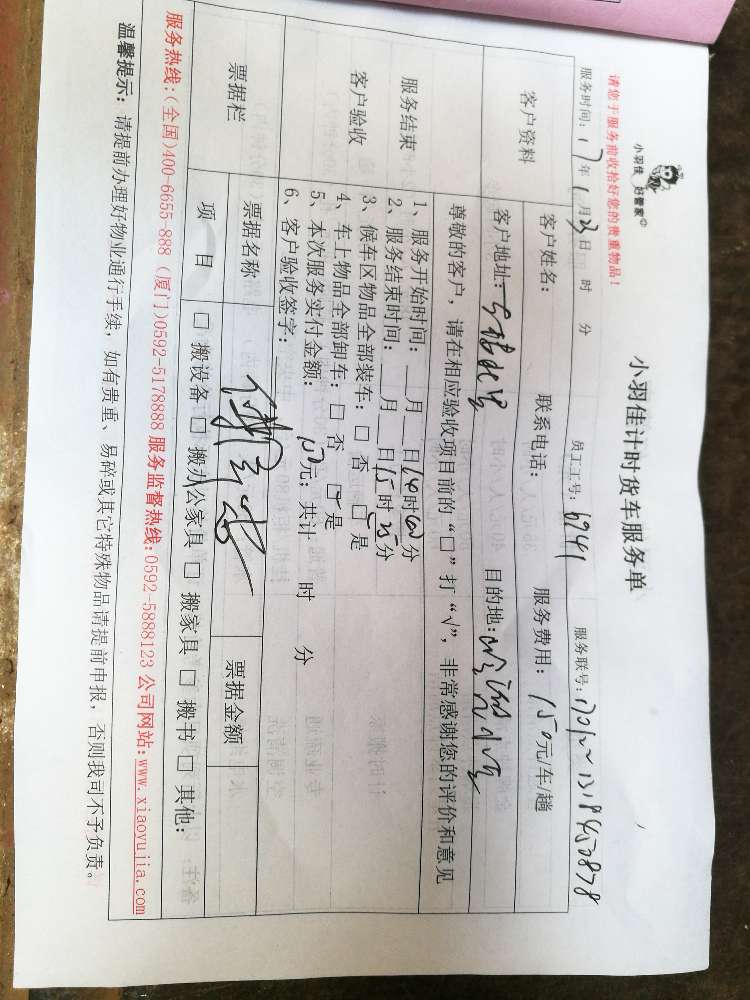 小羽佳 好管家
小羽佳计时货车服务单
请您于服务前收拾好您的贵重物品！
员工工号：6941
服务时间：17年1月23日 时 分
客户资料
客户姓名： 联系电话： 服务费用：150元/车/趟
客户地址： 目的地：
尊敬的客户，请在相应验收项目前的“□”打“√”，非常感谢您的评价和意见
服务结束
客户验收
1、服务开始时间：__月__日14时00分
2、服务结束时间：__月__日15时25分
3、候车区物品全部装车：□ 否 □ 是
4、车上物品全部卸车：□ 否 □ 是
5、本次服务实付金额：150元；共计 时 分
6、客户验收签字：
票据栏
票据名称
票据金额
项 目
□ 搬设备 □ 搬办公家具 □ 搬家具 □ 搬书 □ 其他：
服务热线：(全国)400-6655-888 (厦门)0592-5178888 服务监督热线:0592-5888123 公司网站:www.xiaoyujia.com
温馨提示：请提前办理好物业通行手续，如有贵重、易碎或其它特殊物品请提前申报，否则我司不予负责。